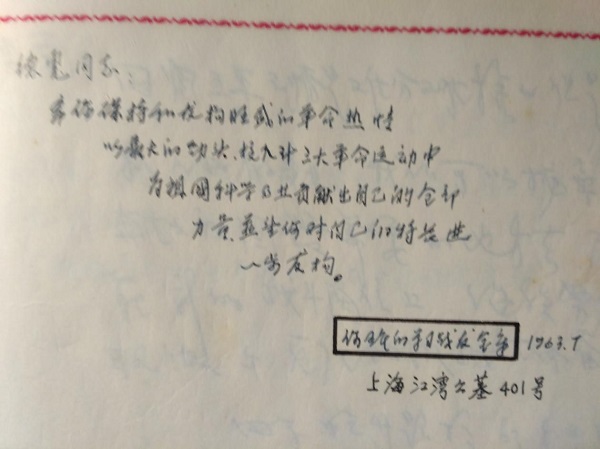 同志
希你保持和发扬旺盛的革命热情
以最大的劲头,投入到三大革命运动中
为祖国科学事业贡献出自己的全部
力量并望你对自己的特长进
一步发扬。
你的学习战友 1963.7
上海江湾公墓401号